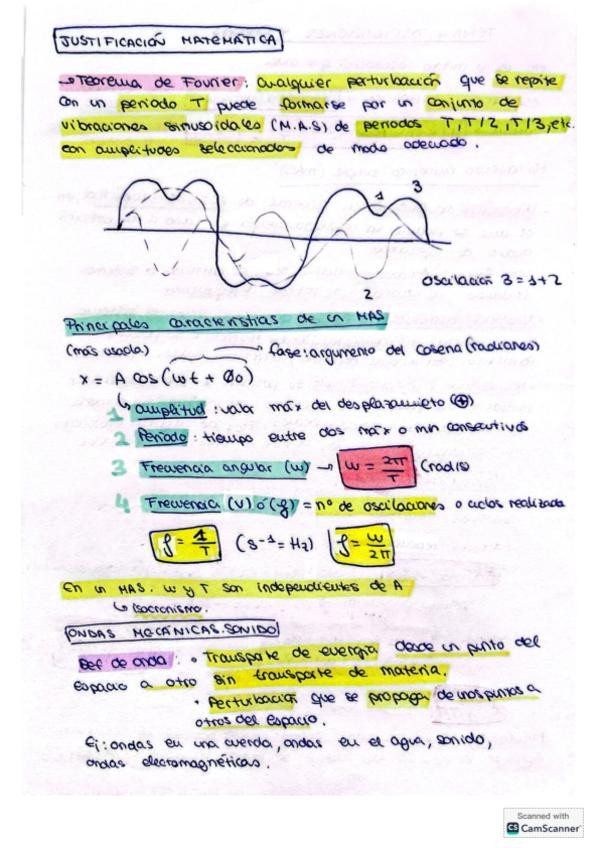 JUSTIFICACIÓN MATEMÁTICA
→Teorema de Fourier: Cualquier perturbación que se repite
con un periodo T puede formarse por un conjunto de
vibraciones sinusoidales (M.A.S) de periodos T, T/2, T/3, etc.
con amplitudes seleccionadas de modo adecuado.
1 3
2
Oscilación 3 = 1+2
Principales características de un MAS
(más usada) fase: argumento del coseno (radianes)
x = A cos (wt + Øo)
1 Amplitud: valor máx del desplazamiento (+)
2 Periodo: tiempo entre dos máx o min consecutivos
3 Frecuencia angular (w) → w = 2π/T (rad/s)
4 Frecuencia (V) ó (f) = nº de oscilaciones o ciclos realizada
f = 1/T (s⁻¹ = Hz) f = w/2π
En un MAS. w y T son independientes de A
↳ isocronismo.
ONDAS MECÁNICAS. SONIDO
Def de onda: • Transporte de energía desde un punto del
espacio a otro sin transporte de materia.
• Perturbación que se propaga de unos puntos a
otros del espacio.
Ej: ondas en una cuerda, ondas en el agua, sonido,
ondas electromagnéticas.
Scanned with
CS CamScanner